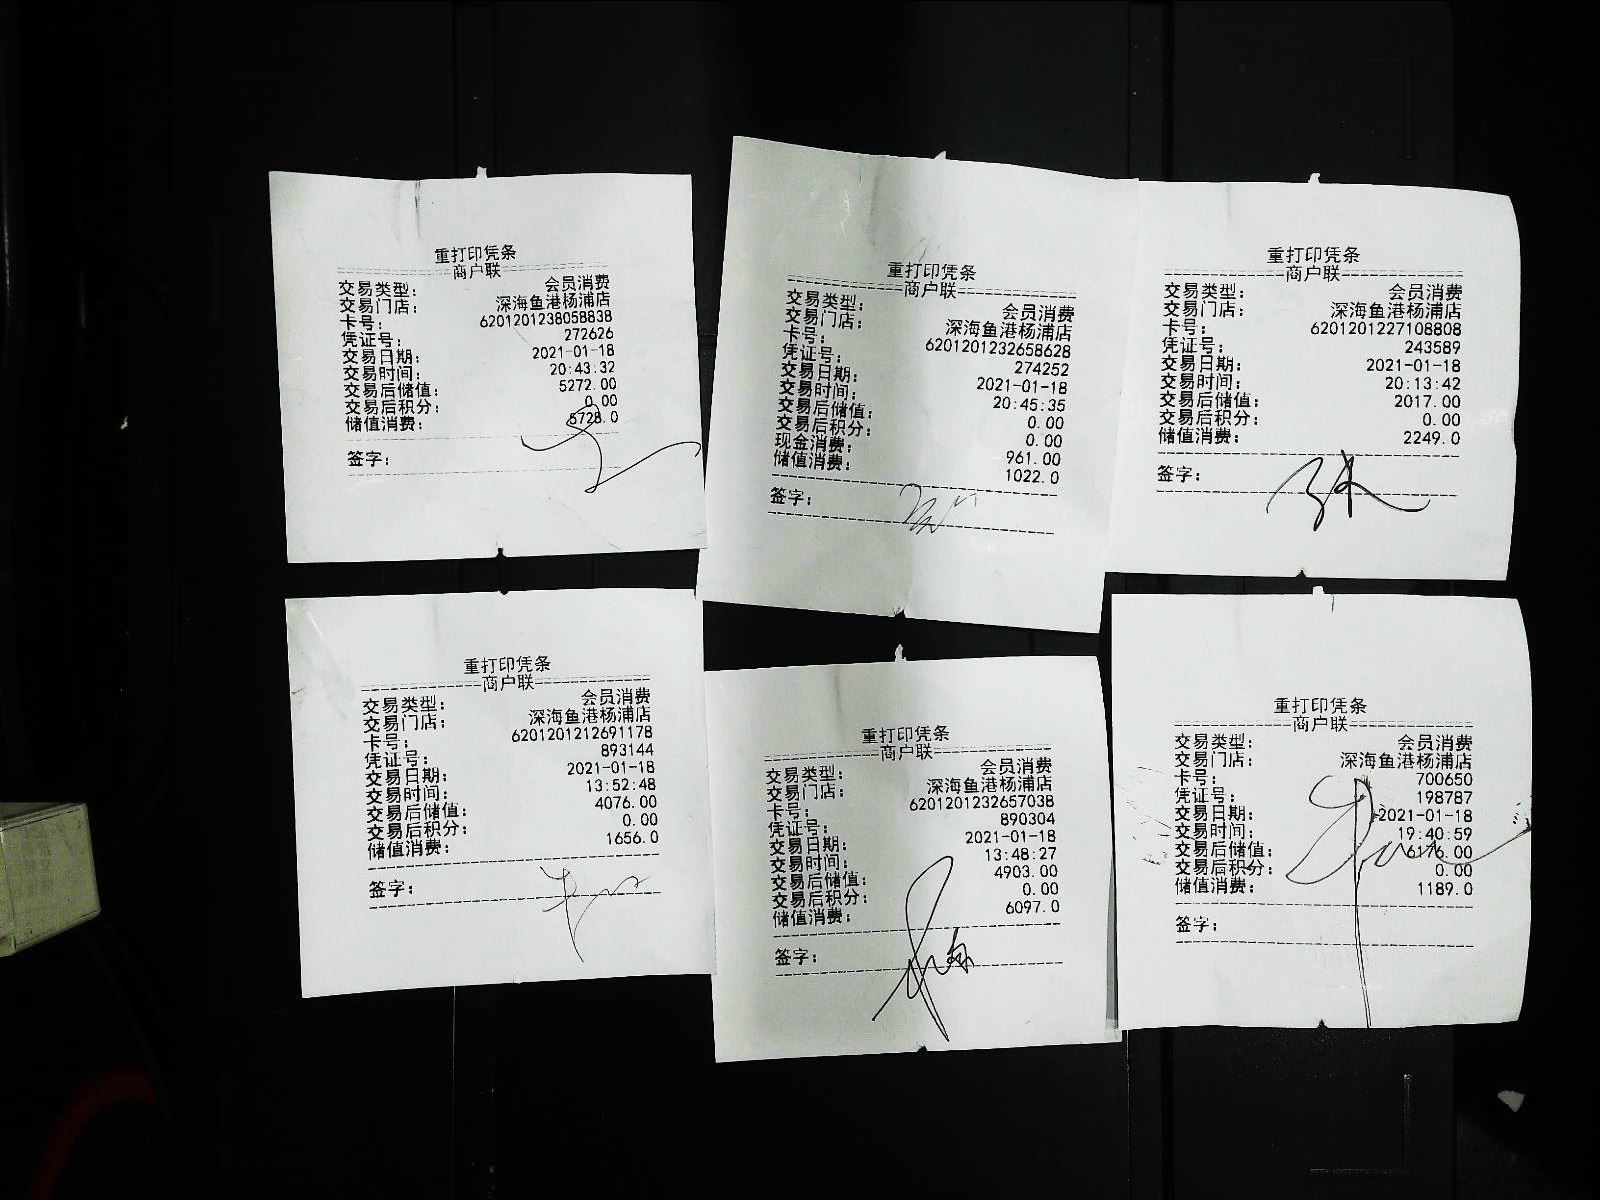 重打印凭条
商户联
交易类型: 会员消费
交易门店: 深海鱼港杨浦店
卡号: 6201201238058838
凭证号: 272626
交易日期: 2021-01-18
交易时间: 20:43:32
交易后储值: 5272.00
交易后积分: 0.00
储值消费: 5728.0
签字:
重打印凭条
商户联
交易类型: 会员消费
交易门店: 深海鱼港杨浦店
卡号: 6201201232658628
凭证号: 274252
交易日期: 2021-01-18
交易时间: 20:45:35
交易后储值: 0.00
交易后积分: 0.00
现金消费: 961.00
储值消费: 1022.0
签字:
重打印凭条
商户联
交易类型: 会员消费
交易门店: 深海鱼港杨浦店
卡号: 6201201227108808
凭证号: 243589
交易日期: 2021-01-18
交易时间: 20:13:42
交易后储值: 2017.00
交易后积分: 0.00
储值消费: 2249.0
签字:
重打印凭条
商户联
交易类型: 会员消费
交易门店: 深海鱼港杨浦店
卡号: 6201201212691178
凭证号: 893144
交易日期: 2021-01-18
交易时间: 13:52:48
交易后储值: 4076.00
交易后积分: 0.00
储值消费: 1656.0
签字:
重打印凭条
商户联
交易类型: 会员消费
交易门店: 深海鱼港杨浦店
卡号: 6201201232657038
凭证号: 890304
交易日期: 2021-01-18
交易时间: 13:48:27
交易后储值: 4903.00
交易后积分: 0.00
储值消费: 6097.0
签字:
重打印凭条
商户联
交易类型: 会员消费
交易门店: 深海鱼港杨浦店
卡号: 700650
凭证号: 198787
交易日期: 2021-01-18
交易时间: 19:40:59
交易后储值: 6176.00
交易后积分: 0.00
储值消费: 1189.0
签字: